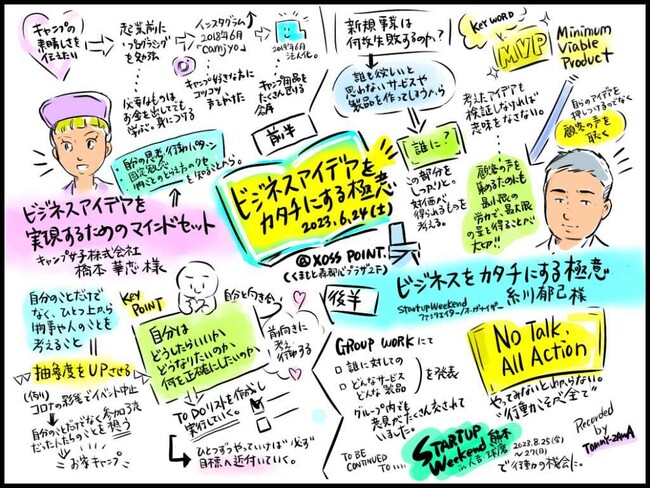 キャンプの
素晴しさを
伝えたい
起業前に
プログラミング
を勉強
必要なものは
お金を出してでも
学ぶ。身につける
インスタグラム
2018年6月
"camjyo"
キャンプ好きな方に
コツコツ
まとめけた
2019年6月
法人化。
キャンプ用品を
たくさん借りる
前半
自分の思考・行動パターン
固定観念
物ごとのとらえ方のクセ
を知ることから。
ビジネスアイデアを
実現するためのマインドセット
キャンプ女子株式会社
橋本 華恋 様
ビジネスアイデアを
カタチにする極意
2023.6.24(土)
@XOSS POINT.
(くまもと森都心プラザ2F)
新規事業は
何故失敗するのか?
誰も欲しいと
思わないサービスや
製品を作ってしまうから
誰に?
この部分を
しっかりと。
対価が
得られるものを
考える。
KEY WORD
MVP
Minimum
Viable
Product
考えたアイデアも
検証しなければ
意味をなさない。
自らのアイデアを
押しつけるのでなく
顧客の声を
聴く
顧客の声を
集めるためにも
最小限の
労力で、最大限
の量を得ることが
大切!!
後半
ビジネスをカタチにする極意
StartupWeekend
ファシリテイター/オーガナイザー
糸川郁己 様
自分のことだけで
なく、ひとつ上から
物事や人のことを
考えること
抽象度をUPさせる
(例)
コロナの影響でイベント中止
自分のことだけでなく参加する方
だったらのことを想う
お家キャンプ
KEY
POINT
自分と向き合う
自分は
どうしたらいいか
どうなりたいのか
何を正確にしたいのか
前向きに
考え
行動する
TO DOリストを作成し
実行していく。
ひとつずつやっていけば"必ず"
目標へ近付いていく。
GROUP WORKにて
誰に対しての
どんなサービス
どんな製品
を発表
グループ内でも
意見がたくさん交されて
いました。
No Talk,
All Action
やってみないとわからない。
"行動がすべて"
Recorded
by
TOMMY-ZAWA
TO BE
CONTINUED
TO....
STARTUP
Weekend 熊本
in 人吉・球磨
2023.8.25(金)
~27(日)
で行動の機会に。